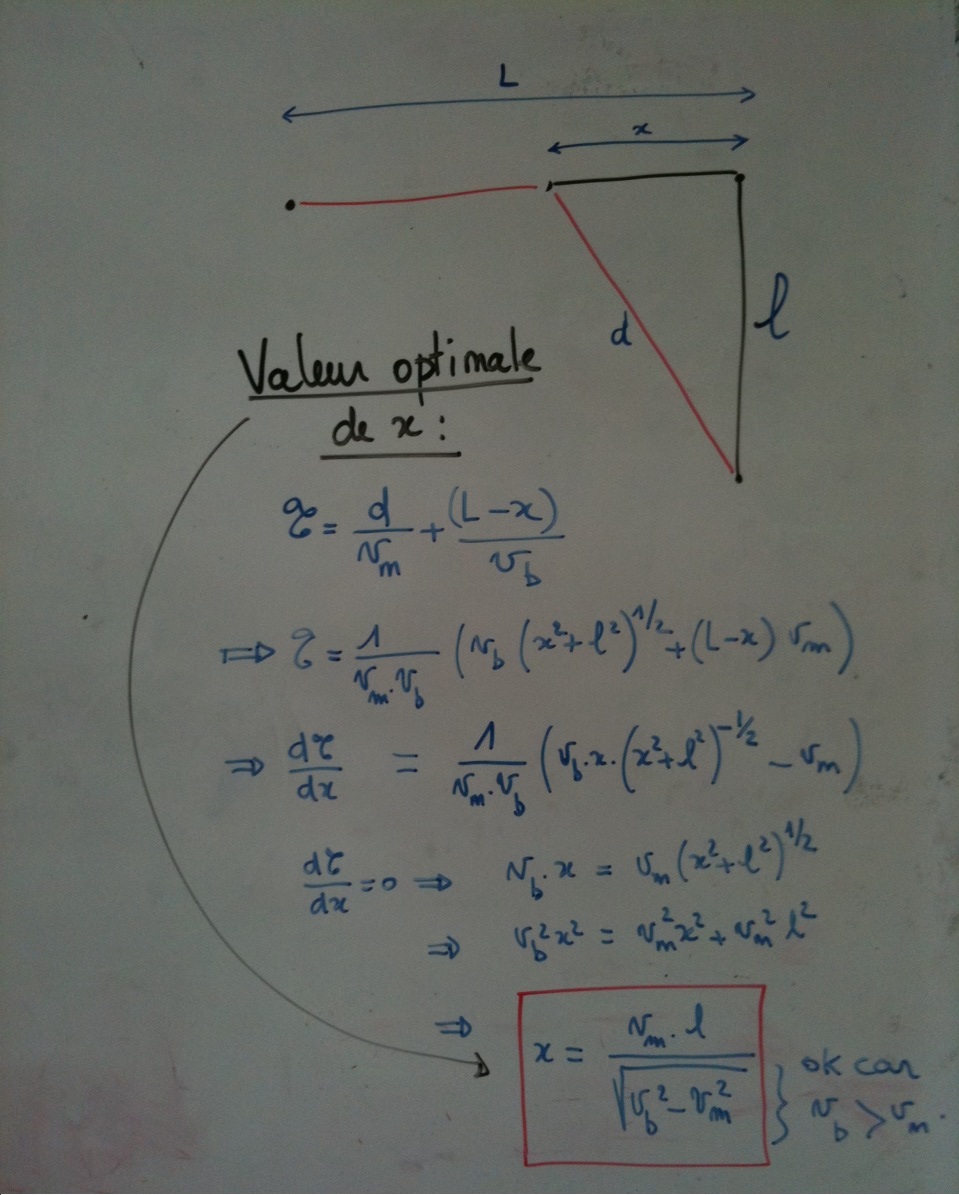 L
x
d
l
Valeur optimale
de x :
τ = d/v_m + (L-x)/v_b
⟹ τ = 1/(v_m.v_b) (v_b (x²+l²)^1/2 + (L-x) v_m)
⟹ dτ/dx = 1/(v_m.v_b) (v_b.x.(x²+l²)^-1/2 - v_m)
dτ/dx = 0 ⟹ v_b.x = v_m (x²+l²)^1/2
⟹ v_b²x² = v_m²x² + v_m² l²
⟹ x = v_m.l / √(v_b² - v_m²) } ok car
v_b > v_m.